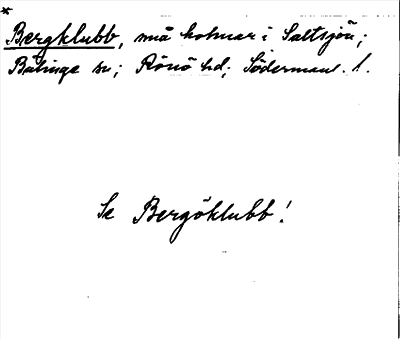 *
Bergklubb, små holmar i Saltsjön;
Bälinge sn; Rönö hd; Södermanl. l.
Se Bergöklubb!